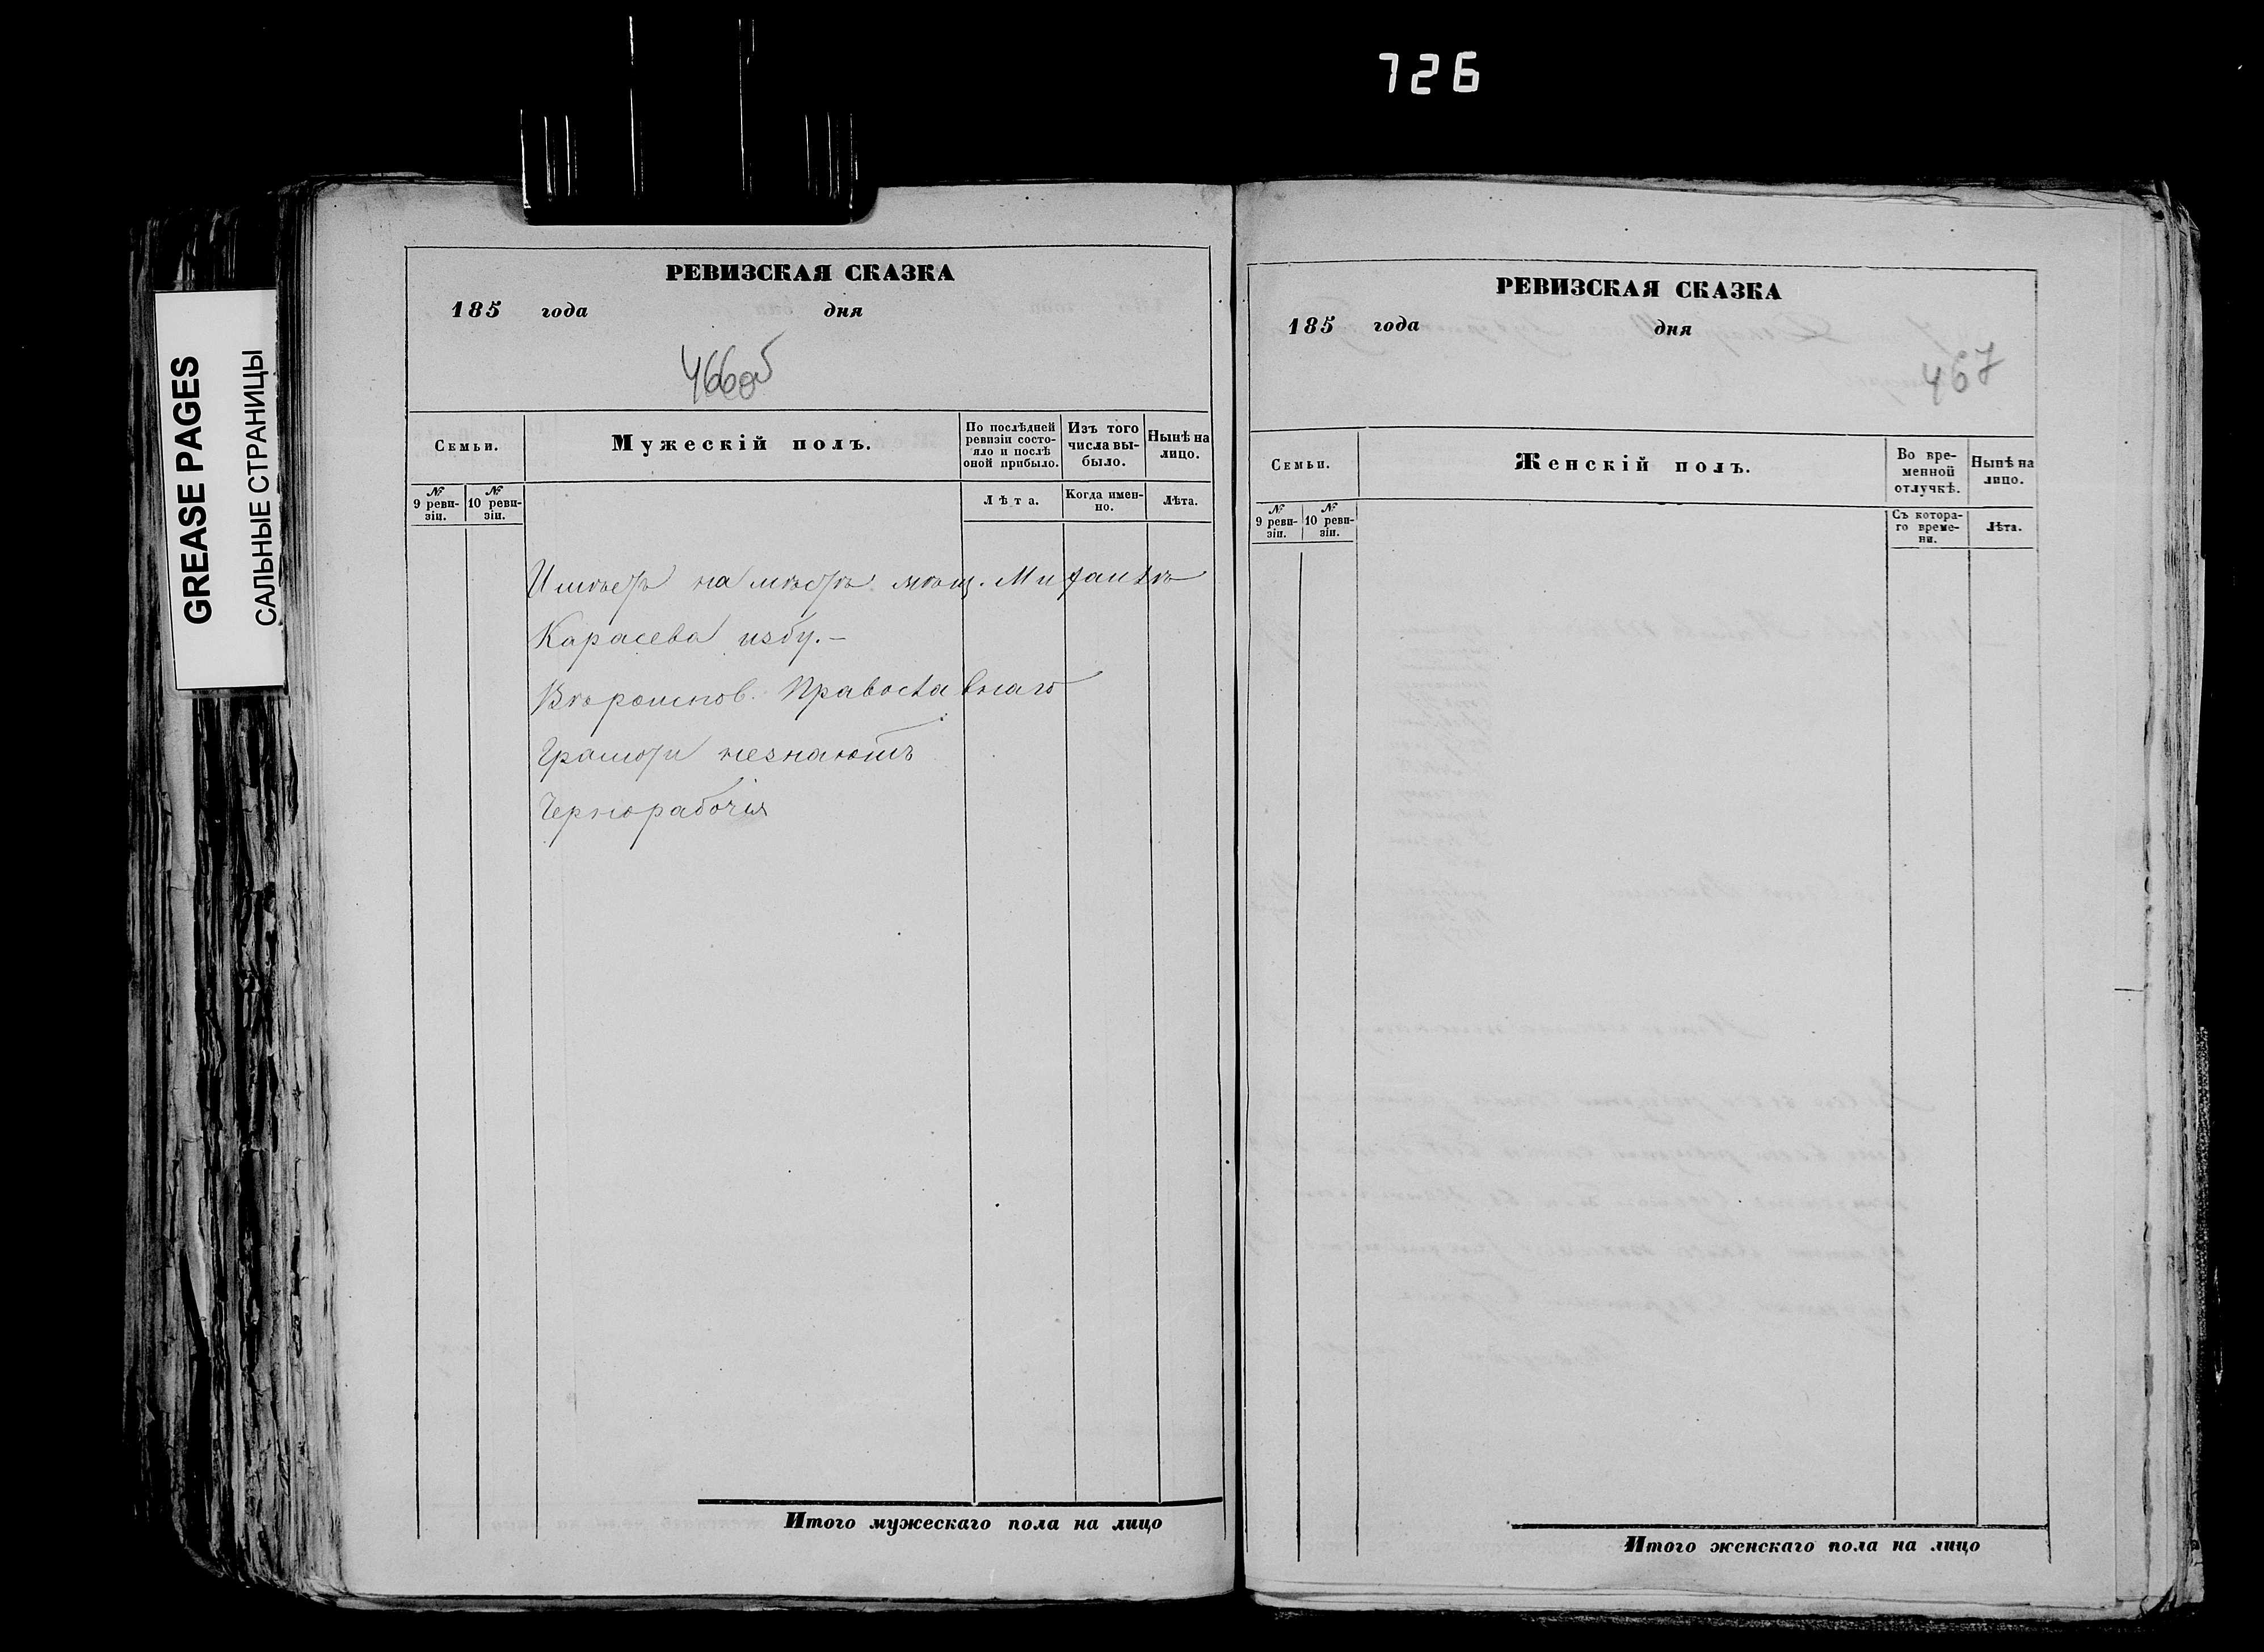 726
GREASE PAGES
САЛЬНЫЕ СТРАНИЦЫ
РЕВИЗСКАЯ СКАЗКА
185 года дня
466об
Семьи.
Мужескій полъ.
По послѣдней ревизіи состо-
яло и послѣ
оной прибыло.
Изъ того
числа вы-
было.
Нынѣ на
лицо.
№
9 реви-
зіи.
№
10 реви-
зіи.
Лѣта.
Когда имен-
но.
Лѣта.
Имѣетъ на мѣстѣ мѣщ.
Карасева избу.-
Вѣроиспов. Православнаго
Грамоти незнаютъ
Чернорабочія
Итого мужескаго пола на лицо
РЕВИЗСКАЯ СКАЗКА
185 года дня
467
Семьи.
Женскій полъ.
Во вре-
менной
отлучкѣ.
Нынѣ на
лицо.
№
9 реви-
зіи.
№
10 реви-
зіи.
Съ котора-
го време-
ни.
Лѣта.
Итого женскаго пола на лицо